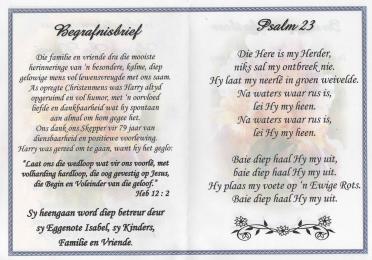 Begrafnisbrief
Die familie en vriende dra die mooiste
herinneringe van 'n besondere, kalme, diep
gelowige mens vol lewensvreugde met ons saam.
As opregte Christenmens was Harry altyd
opgeruimd en vol humor, met 'n oorvloed
liefde en dankbaarheid wat hy spontaan
aan almal om hom gegee het.
Ons dank ons Skepper vir 79 jaar van
diensbaarheid en positiewe voorlewing.
Harry was gereed om te gaan, want hy het geglo:
"Laat ons die wedloop wat vir ons voorlê, met
volharding hardloop, die oog gevestig op Jesus,
die Begin en Voleinder van die geloof."
Heb 12 : 2
Sy heengaan word diep betreur deur
sy Eggenote Isabel, sy Kinders,
Familie en Vriende.
Psalm 23
Die Here is my Herder,
niks sal my ontbreek nie.
Hy laat my neerlê in groen weivelde.
Na waters waar rus is,
lei Hy my heen.
Na waters waar rus is,
lei Hy my heen.
Baie diep haal Hy my uit,
baie diep haal Hy my uit.
Hy plaas my voete op 'n Ewige Rots.
Baie diep haal Hy my uit.